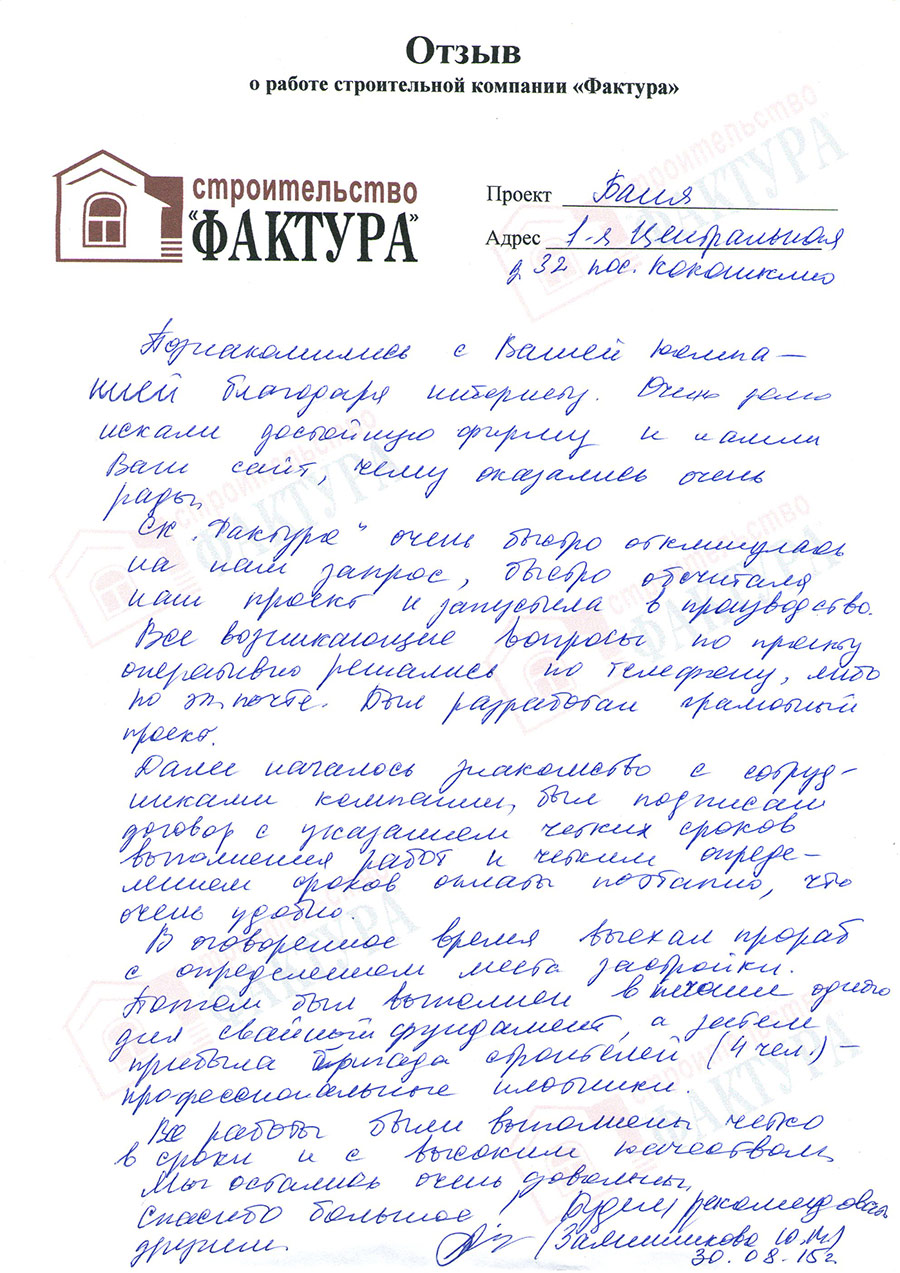 Отзыв
о работе строительной компании «Фактура»
строительство
"ФАКТУРА"
Проект Баня
Адрес 1-я Центральная
д 32 пос. Кокошкино
Познакомились с Вашей компа-
нией благодаря интернету. Очень долго
искали достойную фирму и нашли
Ваш сайт, чему оказались очень
рады.
СК "Фактура" очень быстро откликнулась
на наш запрос, быстро обсчитала
наш проект и запустила в производство.
Все возникающие вопросы по проекту
оперативно решались по телефону, либо
по эл. почте. Был разработан грамотный
проект.
Далее началось знакомство с сотруд-
никами компании, был подписан
договор с указанием четких сроков
выполнения работ и четким опреде-
лением сроков оплаты поэтапно, что
очень удобно.
В оговоренное время выехал прораб
с определением места застройки.
Потом был выполнен в течении одного
дня свайный фундамент, а затем
прибыла бригада строителей (4 чел.) -
профессиональные плотники.
Все работы были выполнены четко
в сроки и с высоким качеством.
Мы остались очень довольны.
Спасибо большое! Будем рекомендовать
друзьям. Ю.М.)
30.08.15г.